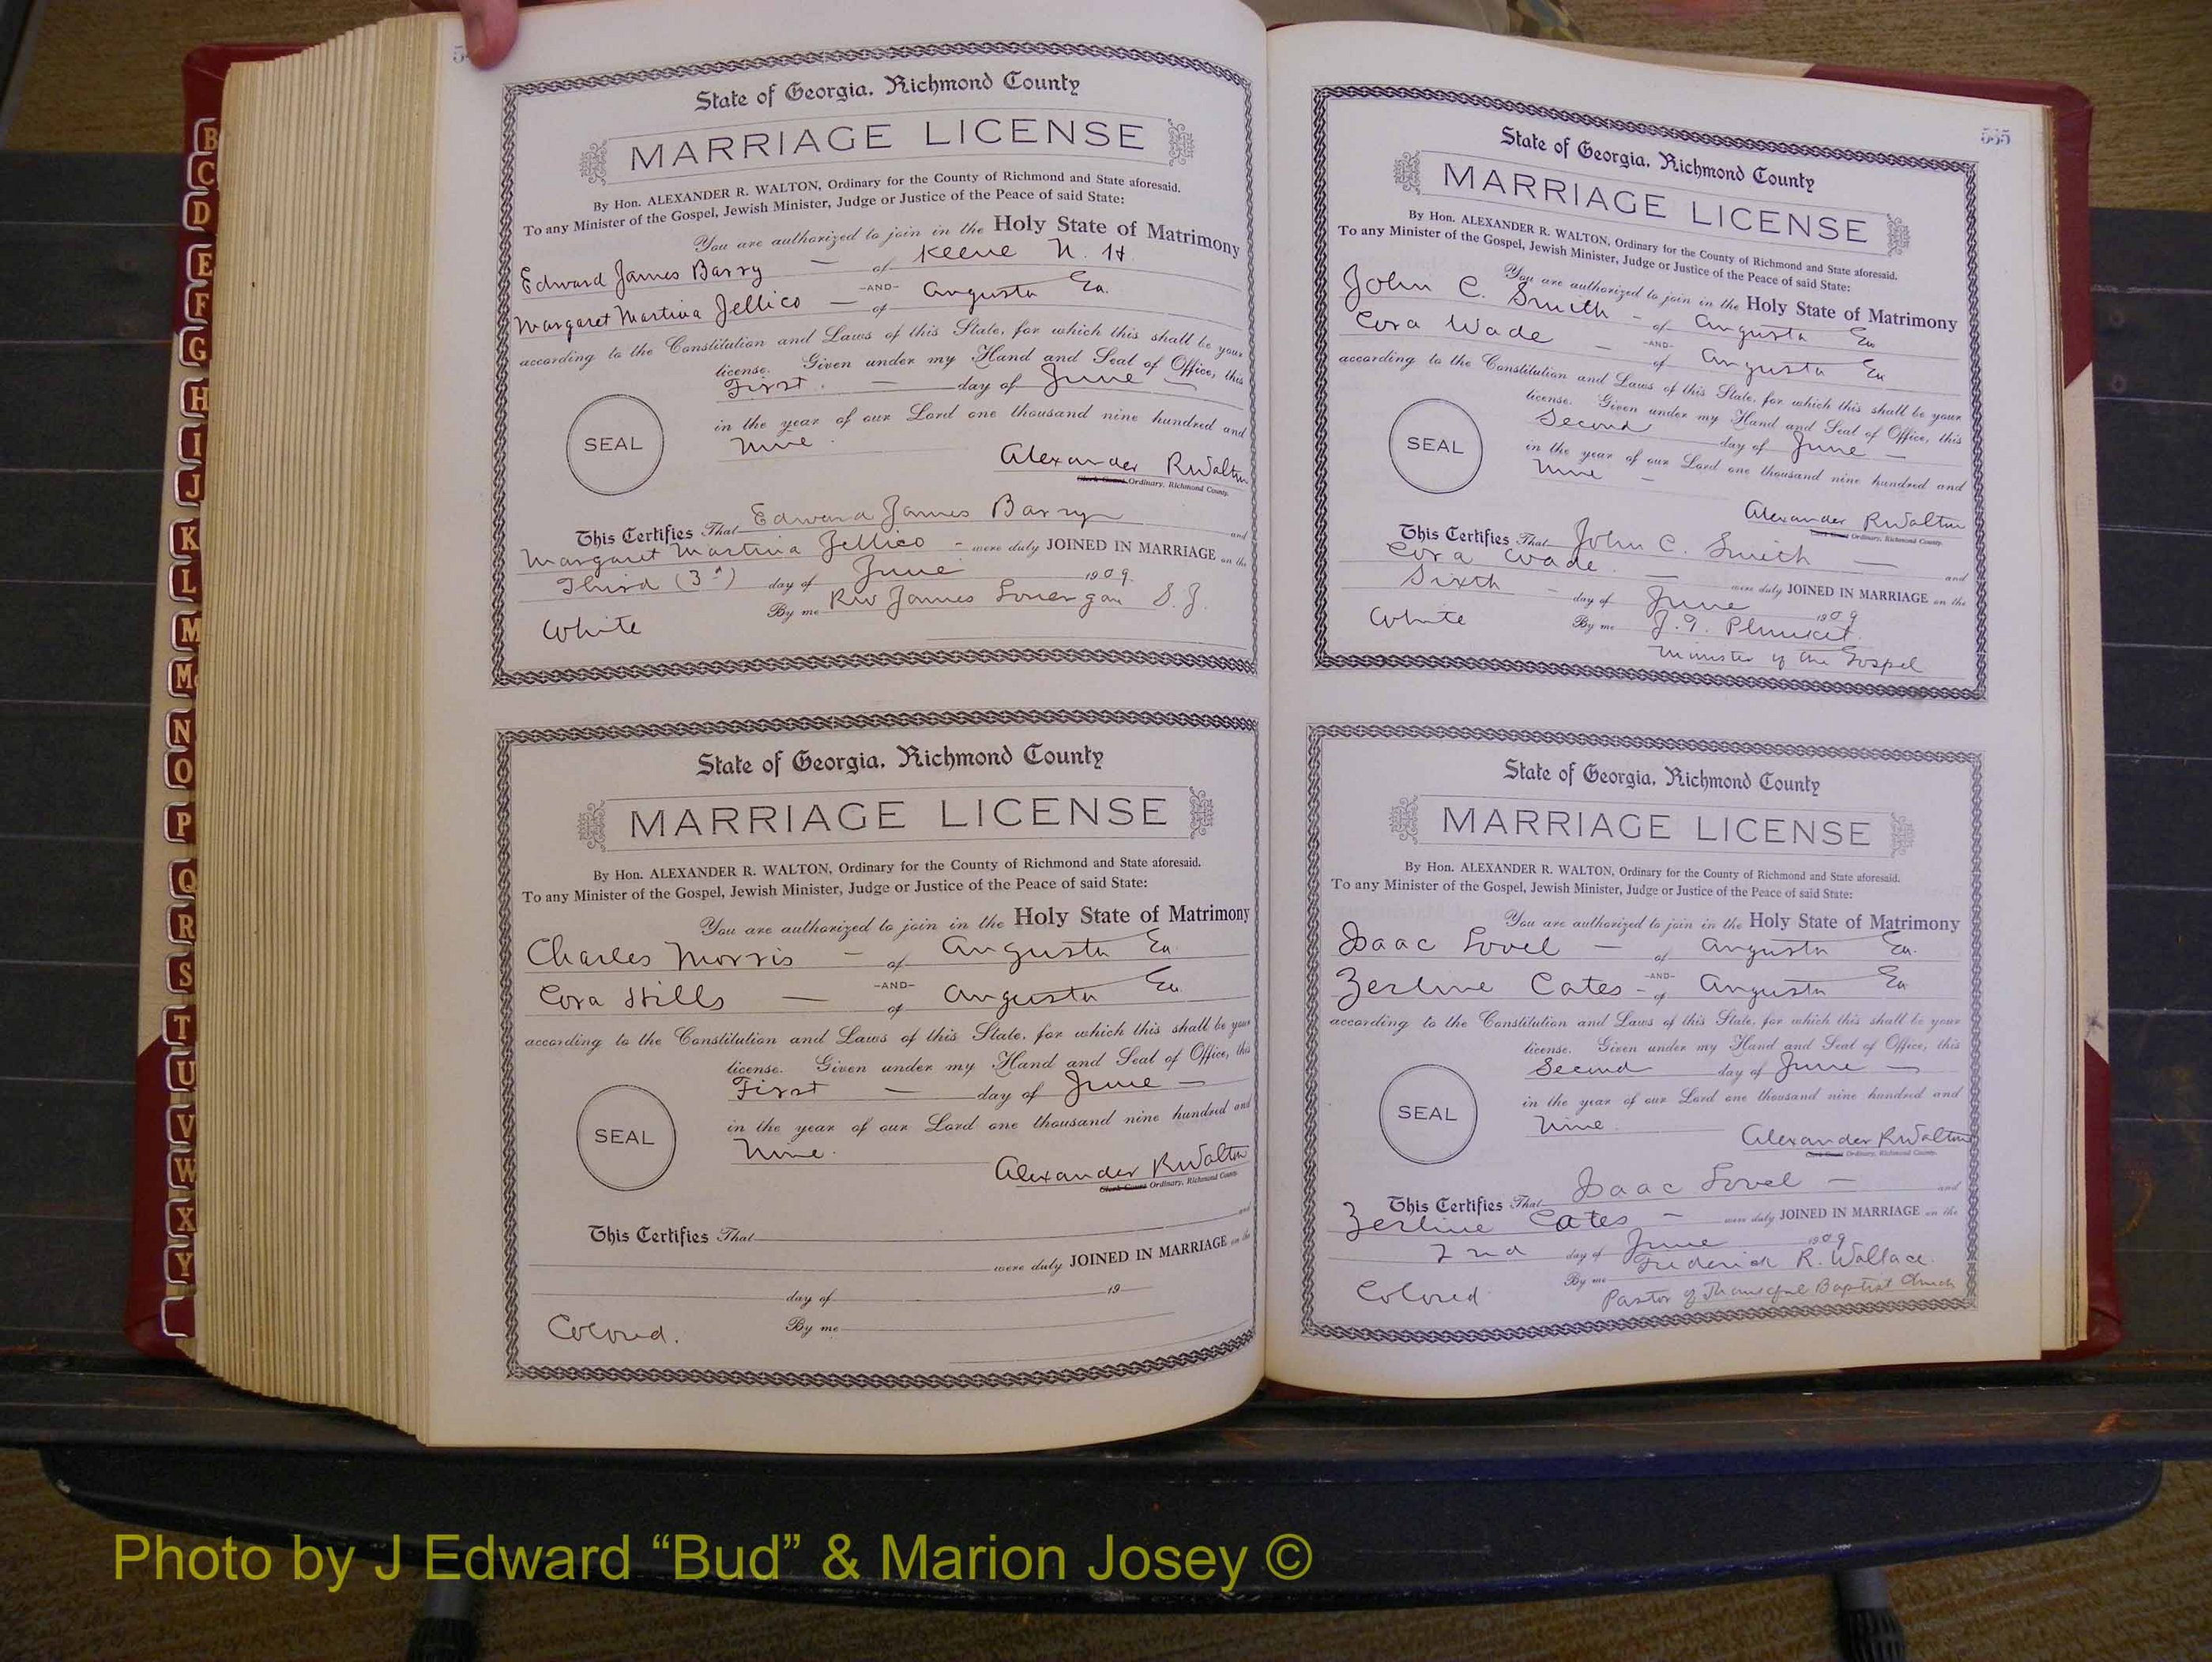 B
C
D
E
F
G
H
I
J
K
L
M
Mc
N
O
P
Q
R
S
T
U
V
W
X
Y
State of Georgia, Richmond County
MARRIAGE LICENSE
By Hon. ALEXANDER R. WALTON, Ordinary for the County of Richmond and State aforesaid.
To any Minister of the Gospel, Jewish Minister, Judge or Justice of the Peace of said State:
You are authorized to join in the Holy State of Matrimony
Edward James Barry — of Keene N. H.
-AND-
Margaret Martina Jellico — of Augusta Ga.
according to the Constitution and Laws of this State, for which this shall be your
license. Given under my Hand and Seal of Office, this
First. — day of June —
in the year of our Lord one thousand nine hundred and
Nine.
SEAL
Alexander R Walton
Clerk Court Ordinary, Richmond County.
This Certifies That Edward James Barry and
Margaret Martina Jellico - were duly JOINED IN MARRIAGE on the
Third (3d) day of June 1909.
By me Rev James Lonergan S. J.
White
State of Georgia, Richmond County
MARRIAGE LICENSE
By Hon. ALEXANDER R. WALTON, Ordinary for the County of Richmond and State aforesaid.
To any Minister of the Gospel, Jewish Minister, Judge or Justice of the Peace of said State:
You are authorized to join in the Holy State of Matrimony
Charles Morris — of Augusta Ga
-AND-
Cora Hills — of Augusta Ga
according to the Constitution and Laws of this State, for which this shall be your
license. Given under my Hand and Seal of Office, this
First — day of June —
in the year of our Lord one thousand nine hundred and
Nine.
SEAL
Alexander R Walton
Clerk Court Ordinary, Richmond County.
This Certifies That and
were duly JOINED IN MARRIAGE on the
day of 19
Colored. By me
565
State of Georgia, Richmond County
MARRIAGE LICENSE
By Hon. ALEXANDER R. WALTON, Ordinary for the County of Richmond and State aforesaid.
To any Minister of the Gospel, Jewish Minister, Judge or Justice of the Peace of said State:
You are authorized to join in the Holy State of Matrimony
John C. Smith - of Augusta Ga
-AND-
Cora Wade — of Augusta Ga
according to the Constitution and Laws of this State, for which this shall be your
license. Given under my Hand and Seal of Office, this
Second day of June —
in the year of our Lord one thousand nine hundred and
Nine —
SEAL
Alexander R Walton
Clerk Court Ordinary, Richmond County.
This Certifies That John C. Smith — and
Cora Wade. — were duly JOINED IN MARRIAGE on the
Sixth - day of June 1909
White By me J. T. Plunket.
Minister of the Gospel
State of Georgia, Richmond County
MARRIAGE LICENSE
By Hon. ALEXANDER R. WALTON, Ordinary for the County of Richmond and State aforesaid.
To any Minister of the Gospel, Jewish Minister, Judge or Justice of the Peace of said State:
You are authorized to join in the Holy State of Matrimony
Isaac Lovel — of Augusta Ga.
-AND-
Zerline Cates - of Augusta Ga
according to the Constitution and Laws of this State, for which this shall be your
license. Given under my Hand and Seal of Office, this
Second day of June —
in the year of our Lord one thousand nine hundred and
Nine.
SEAL
Alexander R Walton
Clerk Court Ordinary, Richmond County.
This Certifies That Isaac Lovel — and
Zerline Cates - were duly JOINED IN MARRIAGE on the
2nd day of June 1909
By me Frederick R. Wallace.
Colored Pastor of Baptist Church
Photo by J Edward “Bud” & Marion Josey ©